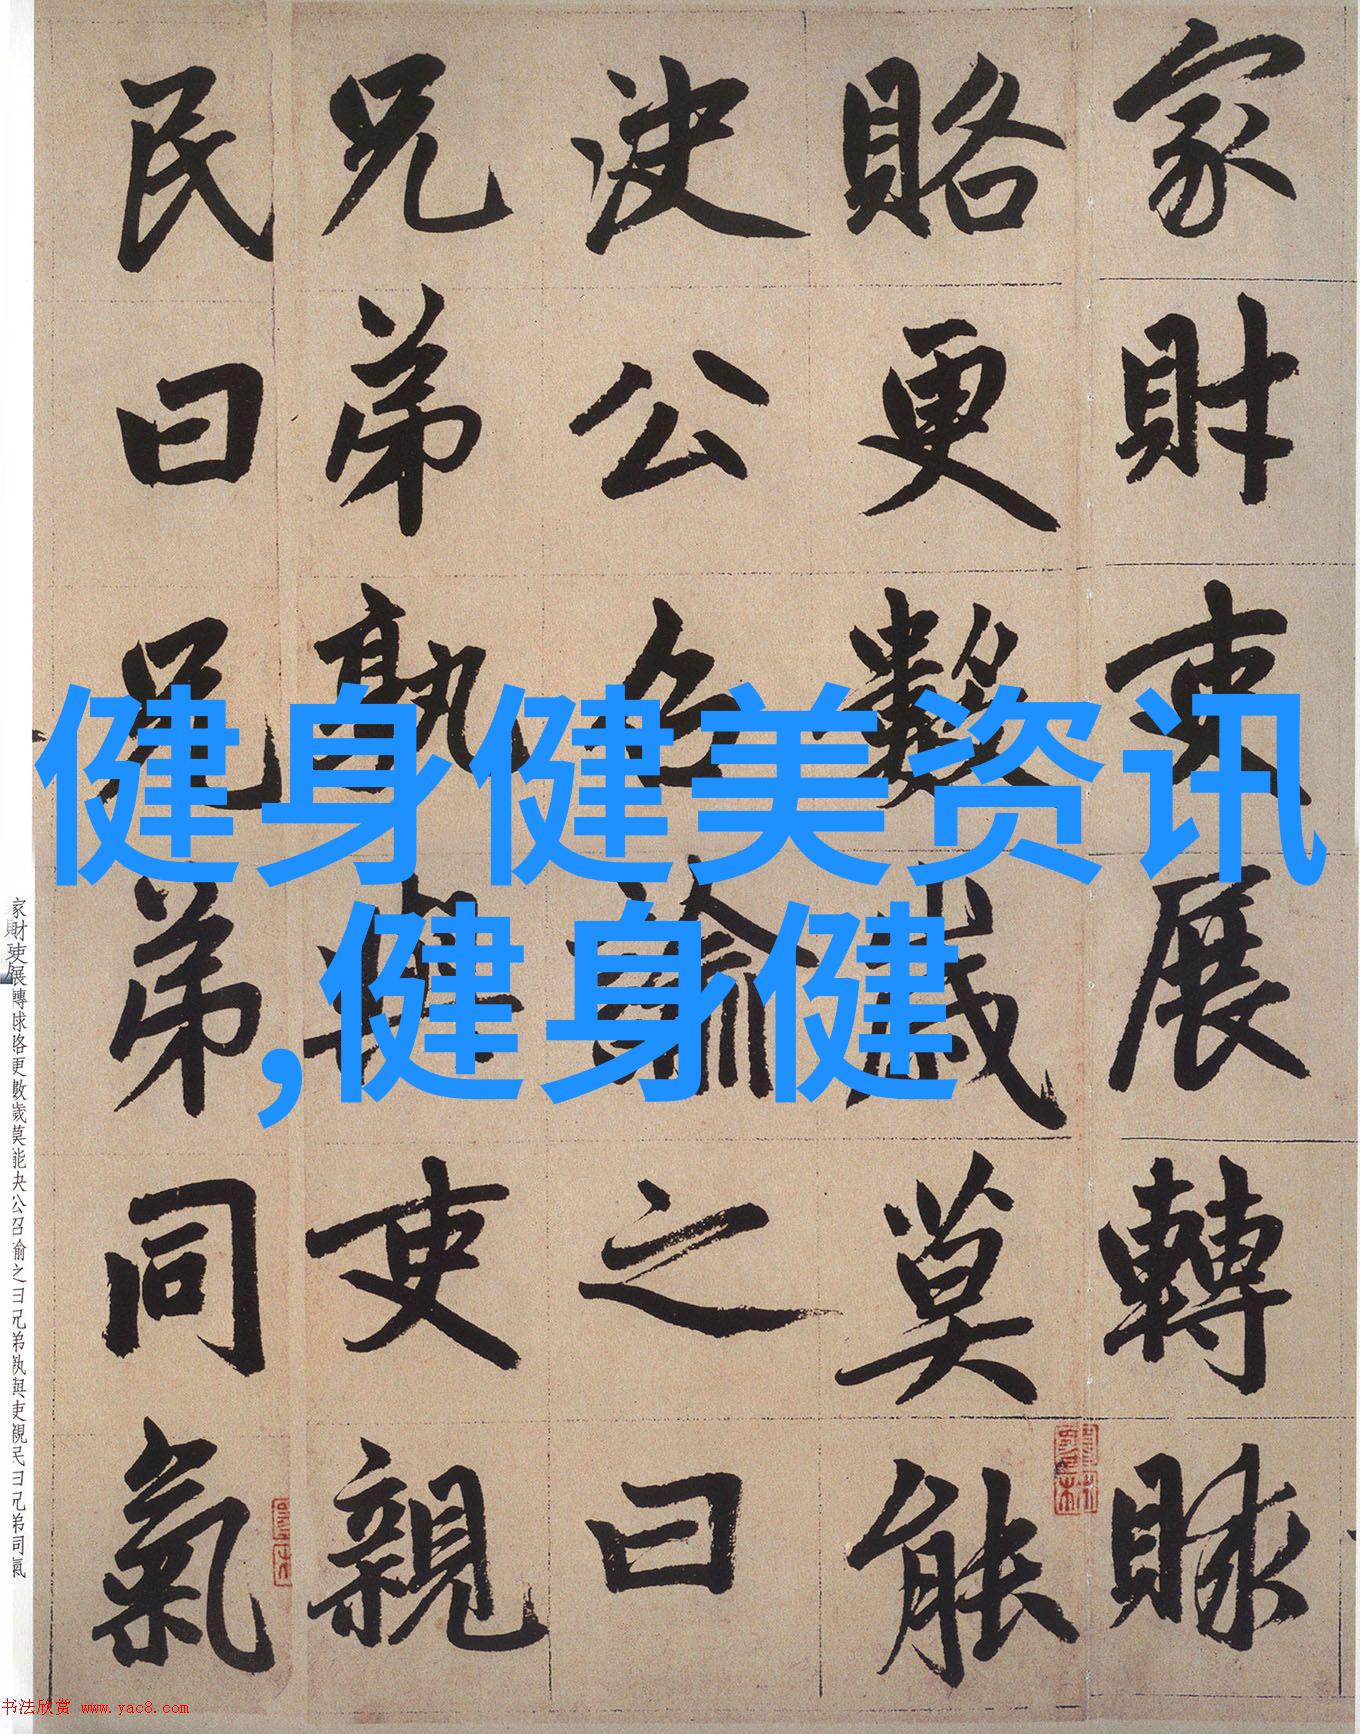 家財吏展轉賕
賂更數歲莫能
決公召諭之曰
兄弟孰與吏親
民曰兄弟同氣
健身健美资讯
,健身健
家財吏展轉賕賂更數歲莫能决公召諭之曰兄弟孰與吏親民曰兄弟同氣
书法欣赏 www.yac8.com